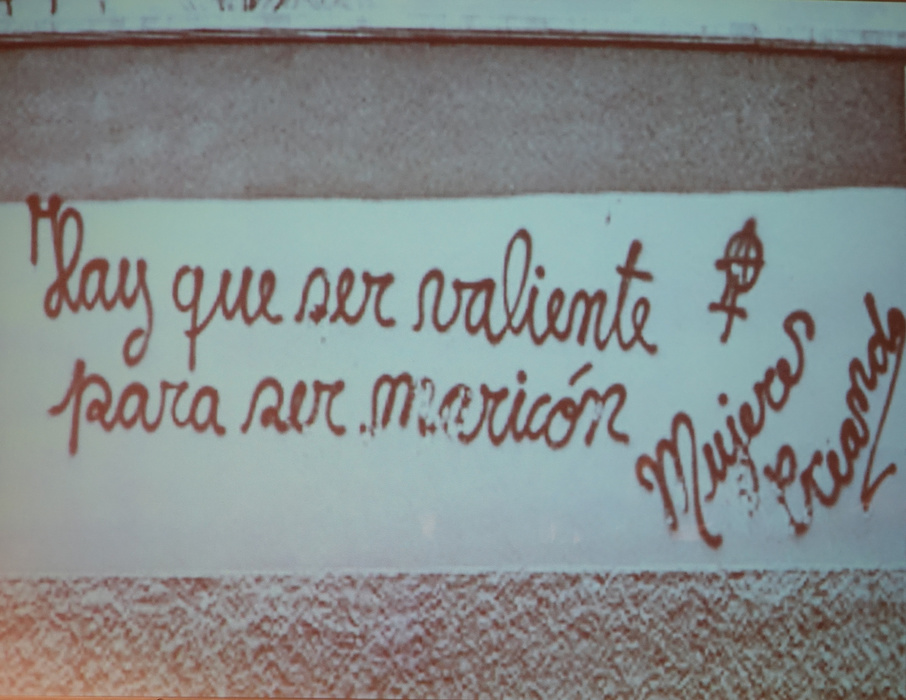 Hay que ser valiente
para ser maricón
Mujeres
Creando